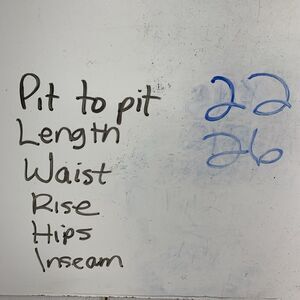 Pit to pit 22
Length 26
Waist
Rise
Hips
Inseam